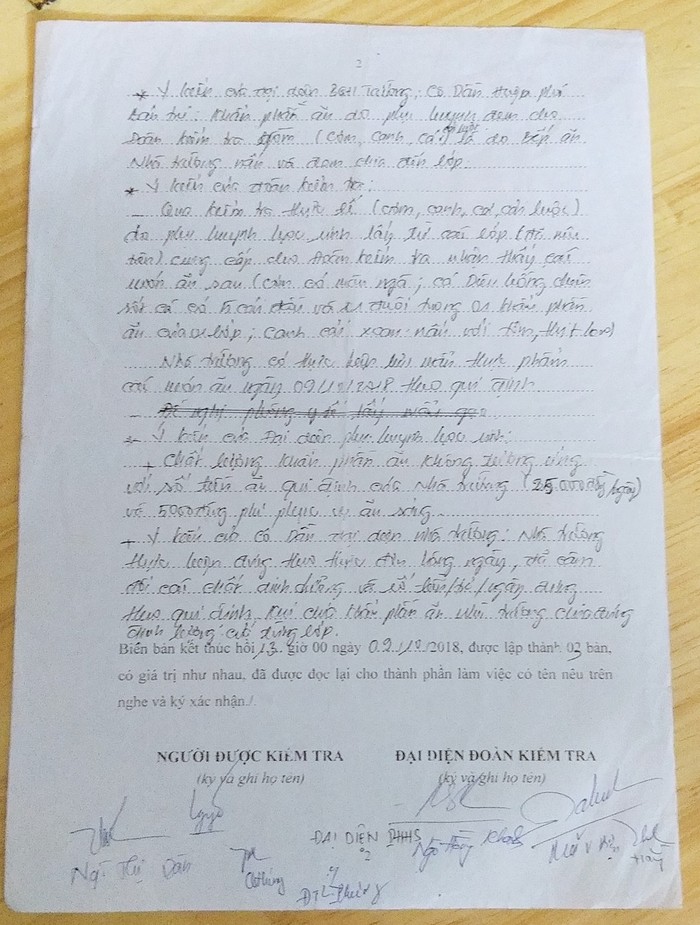 2
* Ý kiến của đại diện BGH Trường: Cô Dần Hiệu phó
bán trú: Khẩu phần ăn do phụ huynh đem cho
Đoàn kiểm tra gồm (cơm, canh, cá) là do bếp ăn
Nhà trường nấu và đem chia đến lớp.
* Ý kiến của đoàn kiểm tra:
- Qua kiểm tra thực tế (cơm, canh, cá, củ luộc)
do phụ huynh học sinh lấy từ các lớp
trên) cung cấp cho Đoàn kiểm tra nhận thấy các
món ăn sau (cơm có; cá Diêu hồng chiên
sốt cà có và đuôi trong 01 khẩu phần
ăn của lớp; Canh cải xoong nấu với tôm, thịt heo)
Nhà trường có thực hiện lưu mẫu thực phẩm
các món ăn ngày 02/12/2018 theo qui định
- Đề nghị phòng y tế lấy mẫu
- Ý kiến của Đại diện phụ huynh học sinh:
+ Chất lượng khẩu phần ăn không tương ứng
với số tiền ăn qui định của Nhà trường (25.000đ/ngày)
và 5000 đồng phí phục vụ ăn sáng.
+ Ý kiến của cô Dần đại diện nhà trường: Nhà trường
thực hiện đúng theo thực đơn hàng ngày, đã cân
đối các chất dinh dưỡng và số tiền/trẻ/ngày đúng
theo qui định, khẩu phần ăn nhà trường chia đúng
định lượng của từng lớp.
Biên bản kết thúc hồi 13 giờ 00 ngày 02/12/2018, được lập thành 03 bản,
có giá trị như nhau, đã được đọc lại cho thành phần làm việc có tên nêu trên
nghe và ký xác nhận./.
NGƯỜI ĐƯỢC KIỂM TRA ĐẠI DIỆN ĐOÀN KIỂM TRA
(ký và ghi họ tên) (ký và ghi họ tên)
ĐẠI DIỆN PHHS
Ngô Thị Dần